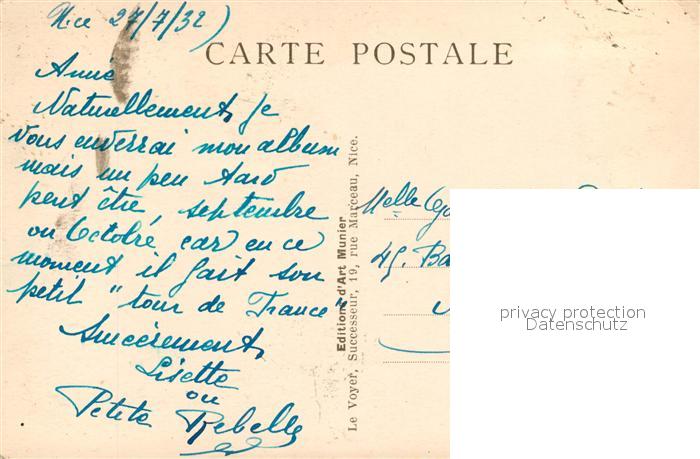 Nice 27/7/32)
CARTE POSTALE
Amie
Naturellement, je
vous enverrai mon album
mais un peu tard
peut être, septembre
ou Octobre car en ce
moment il fait son
petit "tour de France"
Sincèrement,
Lisette
ou
Petite Rebelle
Editions d'Art Munier
Le Voyer, Successeur, 19, rue Marceau, Nice.
Melle
45. Ba
privacy protection
Datenschutz